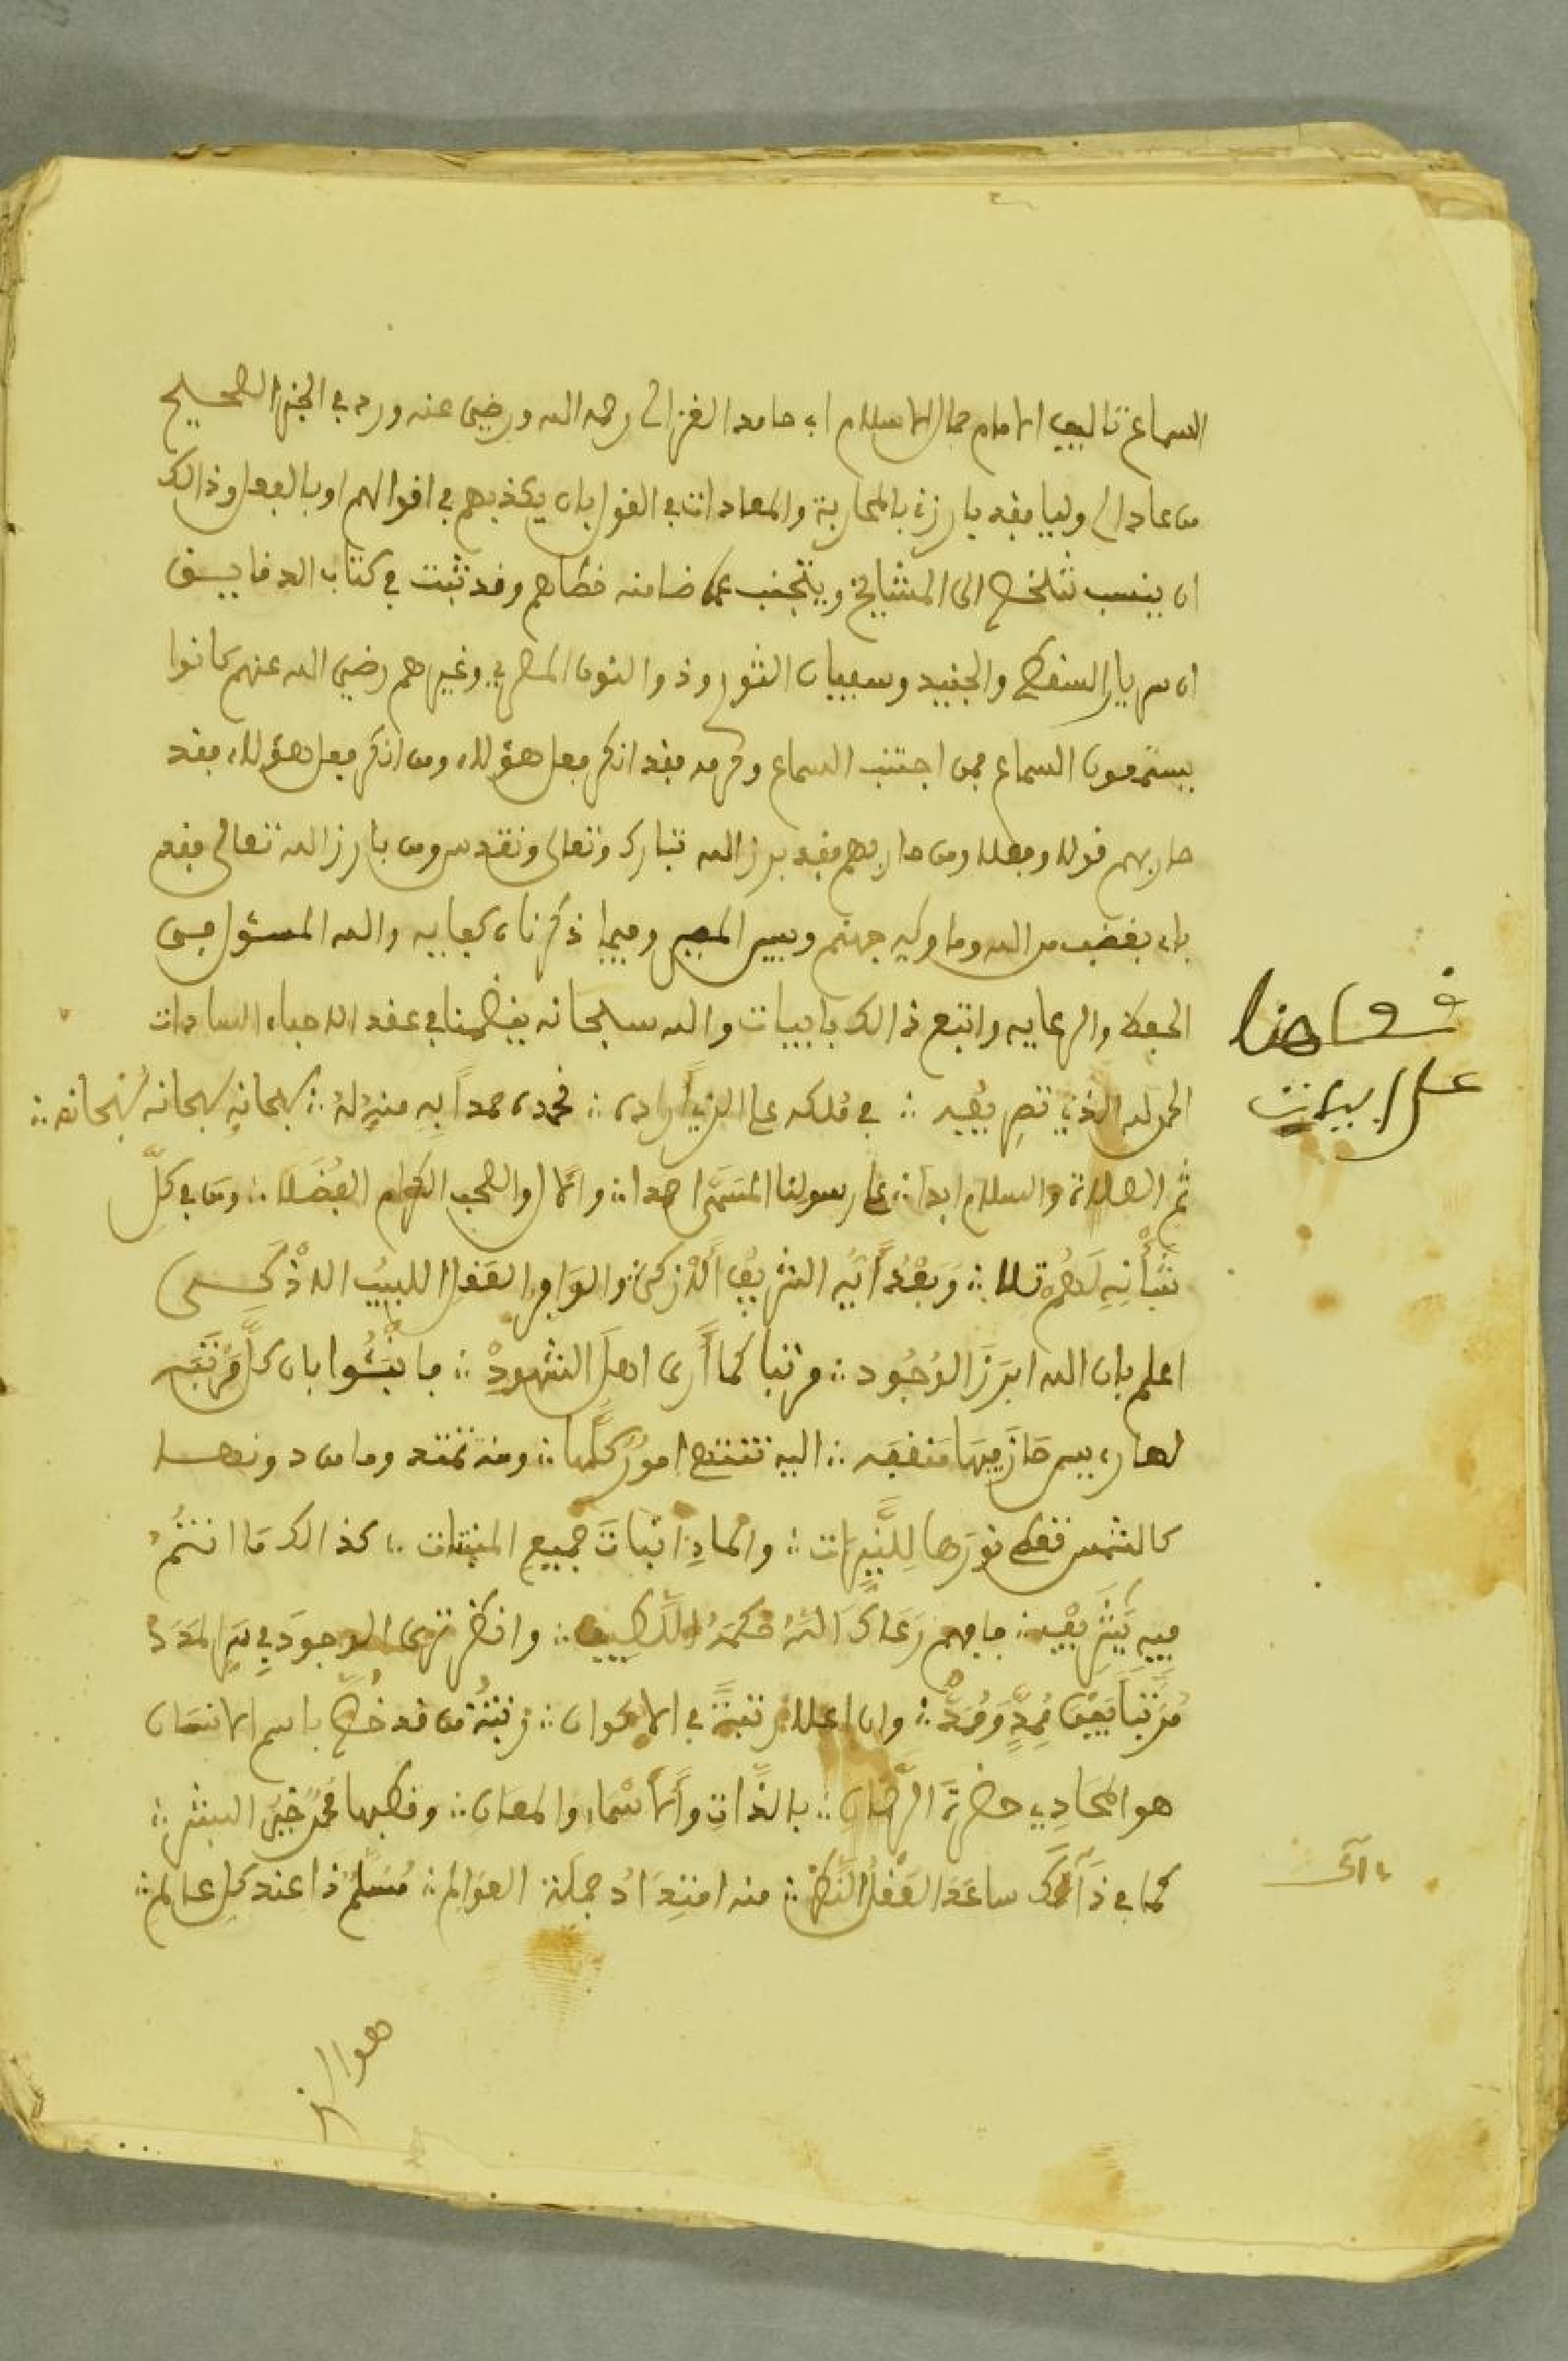 السماع تاليف الامام جمال الاسلام ابي حامد الغزالي رحمه الله ورضي عنه ورد في الخبر الصحيح
من عادا لي وليا فقد بارزني بالمحاربة والمعادات في القول بان يكذبهم في اقوالهم او بالفعل وذالك
ان ينسب الى المشايخ ويتجنب خطاهم وقد ثبت في كتاب الله
ان سريا السقطي والجنيد وسفيان الثوري وذوا النون المصري وغيرهم رضي الله عنهم كانوا
يستمعون السماع فمن اجتنب السماع وحرمه فقد انكر فعل هؤلاء ومن انكر فعل هؤلاء فقد
حاربهم قولا وفعلا ومن حاربهم فقد برز الله تبارك وتعالى وتقدس ومن بارز الله تعالى فقد
باء بغضب من الله وماويه جهنم وبيس المصير وفيما ذكرناه كفايه والله المسؤل في
الحفظ والرعايه واتبع ذالك بابيات والله سبحانه ينضمنا في عقد الاحباء السادات
الحمد لله الذي تصريفه ∴ في ملكه على الذي اراده ∴ نحمده حمدا به منه له ∴ سبحانه سبحانه سبحانه ∴
ثم الصلاة والسلام ابدا ∴ على رسولنا المسمى احمدا ∴ والال والصحب الكرام الفضلا ∴ ومن في كل
شأنه لهم تلا ∴ وبعد أيه الشريف الازكى ∴ والوافر العقل اللبيب الاذكى
اعلم بان الله ابرز الوجود ∴ مرتبا كما أرى اهل الشهود ∴ فانبئوا بان كل مرتبه
لها رءيس حاز فيها منقبه ∴ اليه تنتهي امور كلها ∴ ومنه تمتد وما من دونها
كالشمس تعطي نورها للنيرات ∴ والماء انبات جميع المنبتات ∴ كذالك ما انتم
فيه يشريف ∴ فافهم رعاك الله حكمة اللطيف ∴ وانظر ترى الوجود في سر المدد
مرتبا بين ممد وممد ∴ وان اعلا رتبة في الاكوان ∴ رتبة من قد خص باسم الانسان
هو المحاذي حضرة الرحمان ∴ بالذات والاسماء والمعان ∴ وقطبها محمد خير البشر ∴
كما في ذالك ساعد العقل النظر ∴ منه امتداد جملة العوالم ∴ مسلم ذا عند كل عالم ∴
قف هنا
على ابيات
هو ال